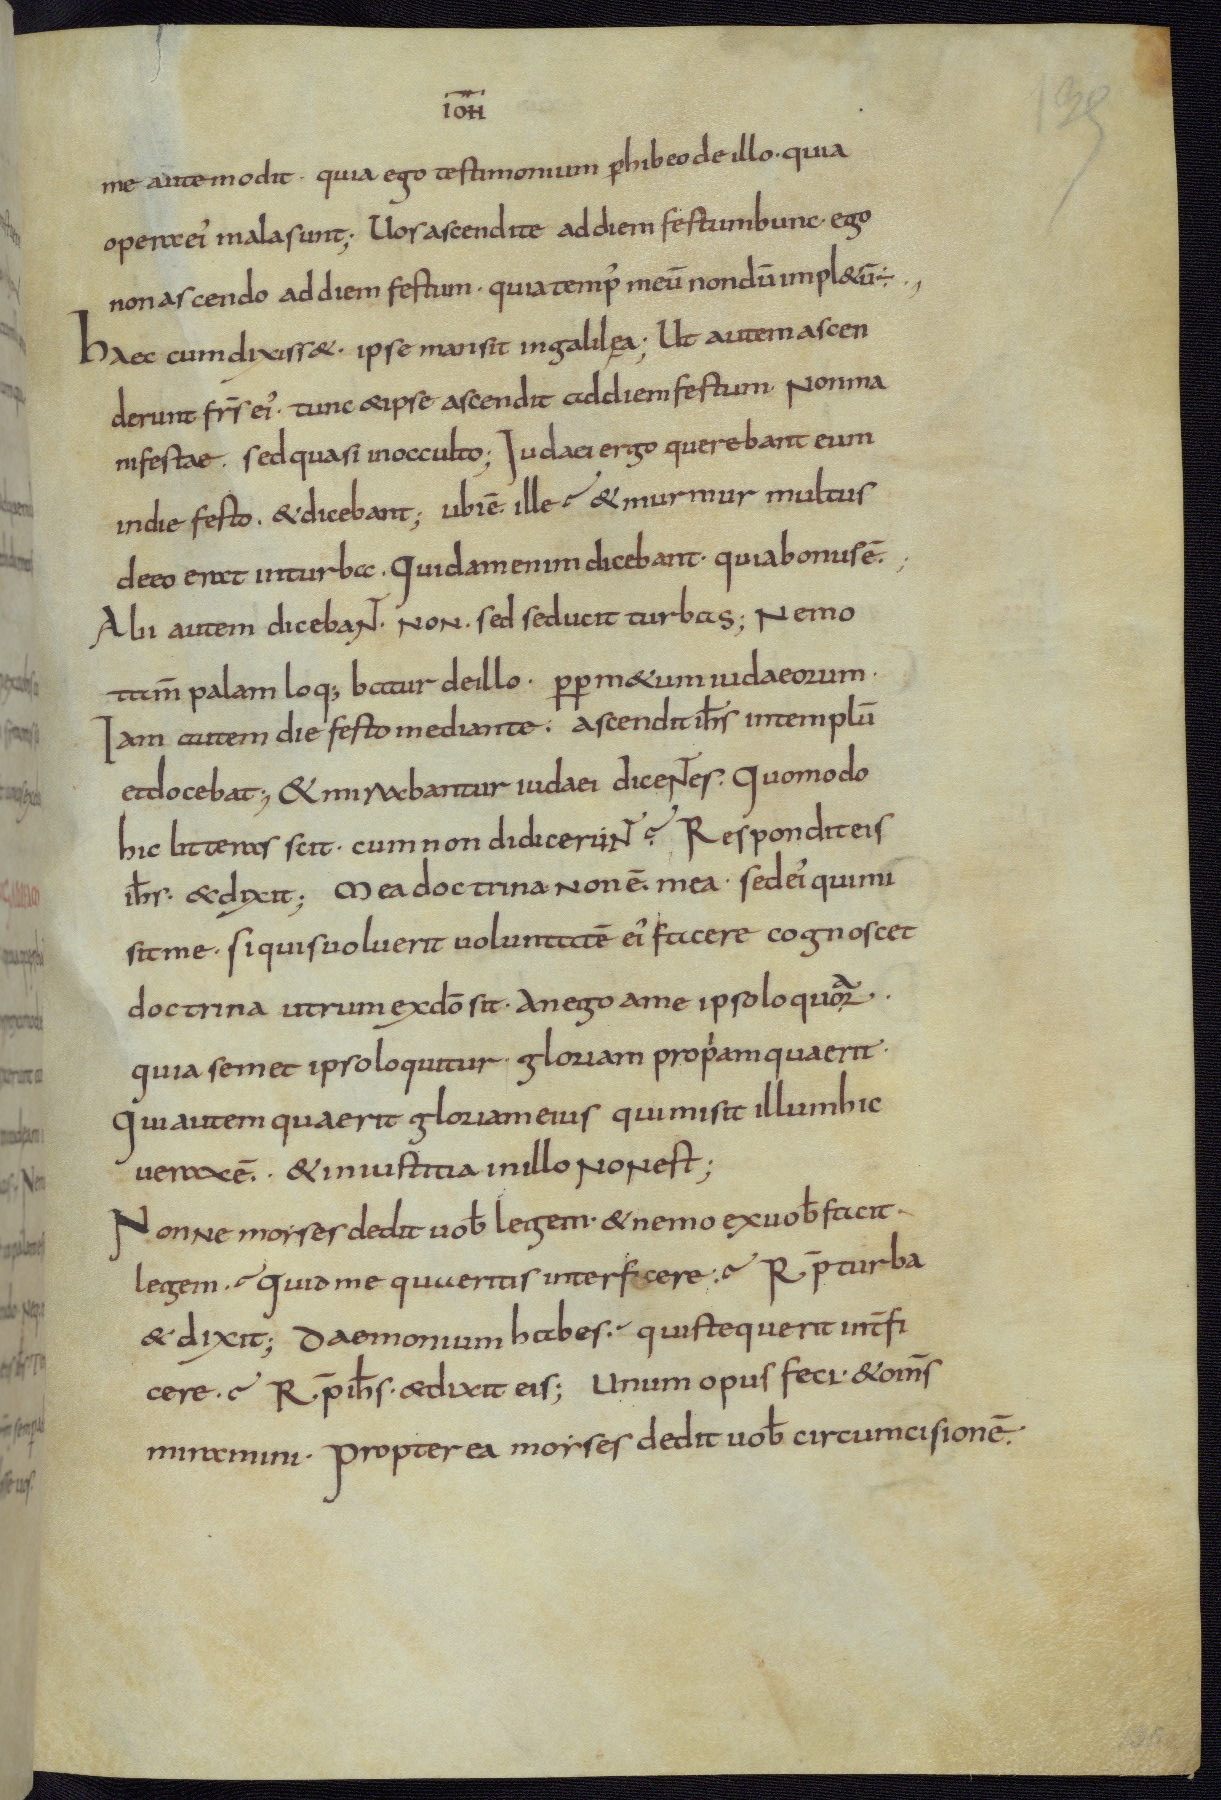 ioħ
me autem odit · quia ego testimonium ꝑhibeo de illo · quia
opera ei᾽ mala sunt; Uos ascendite ad diem festum hunc · ego
non ascendo ad diem festum · quia temp᾽ meū nondū impl&ū÷ ·,
haec cum dixiss& · ipse mansit in galilęa; Ut autem ascen
derunt fr̄s ei᾽ · tunc & ipse ascendit ad diem festum · Non ma
nifestae · sed quasi in occulto; Iudaei ergo querebant eum
in die festo · & dicebant; ubi ē ille & murmur multus
de eo erat in turba · Quidam enim dicebant · quia bonus ē ·;
Alii autem dicebant · Non · sed seducit turbas; Nemo
tam̄ palam loq; batur de illo · ꝓp m&um iudaeorum ·
Iam autem die festo mediante · ascendit ih̄s in templū
et docebat; & mirabantur iudaei dicentes · Quomodo
hic litteras scit · cum non didicerint Respondit eis
ih̄s · & dixit; Mea doctrina non ē mea · sed ei᾽ qui mi
sit me · si quis uoluerit uoluntatē ei᾽ facere cognoscet
doctrina utrum ex dō sit · An ego a me ipso loquor ·
quia semet ipso loquitur · gloriam propriam quaerit ·
Qui autem quaerit gloriam eius qui misit illum hic
uerax ē · & iniustitia in illo non est;
Nonne moises dedit uob̄ legem · & nemo ex uob̄ facit
legem · Quid me quaeritis interficere · R̄p turba
& dixit; Daemonium habes · quis te querit int̄fi
cere · R̄p ih̄s · & dixit eis; Unum opus feci · & om̄s
miramini · Propterea moises dedit uob̄ circumcisionē ·